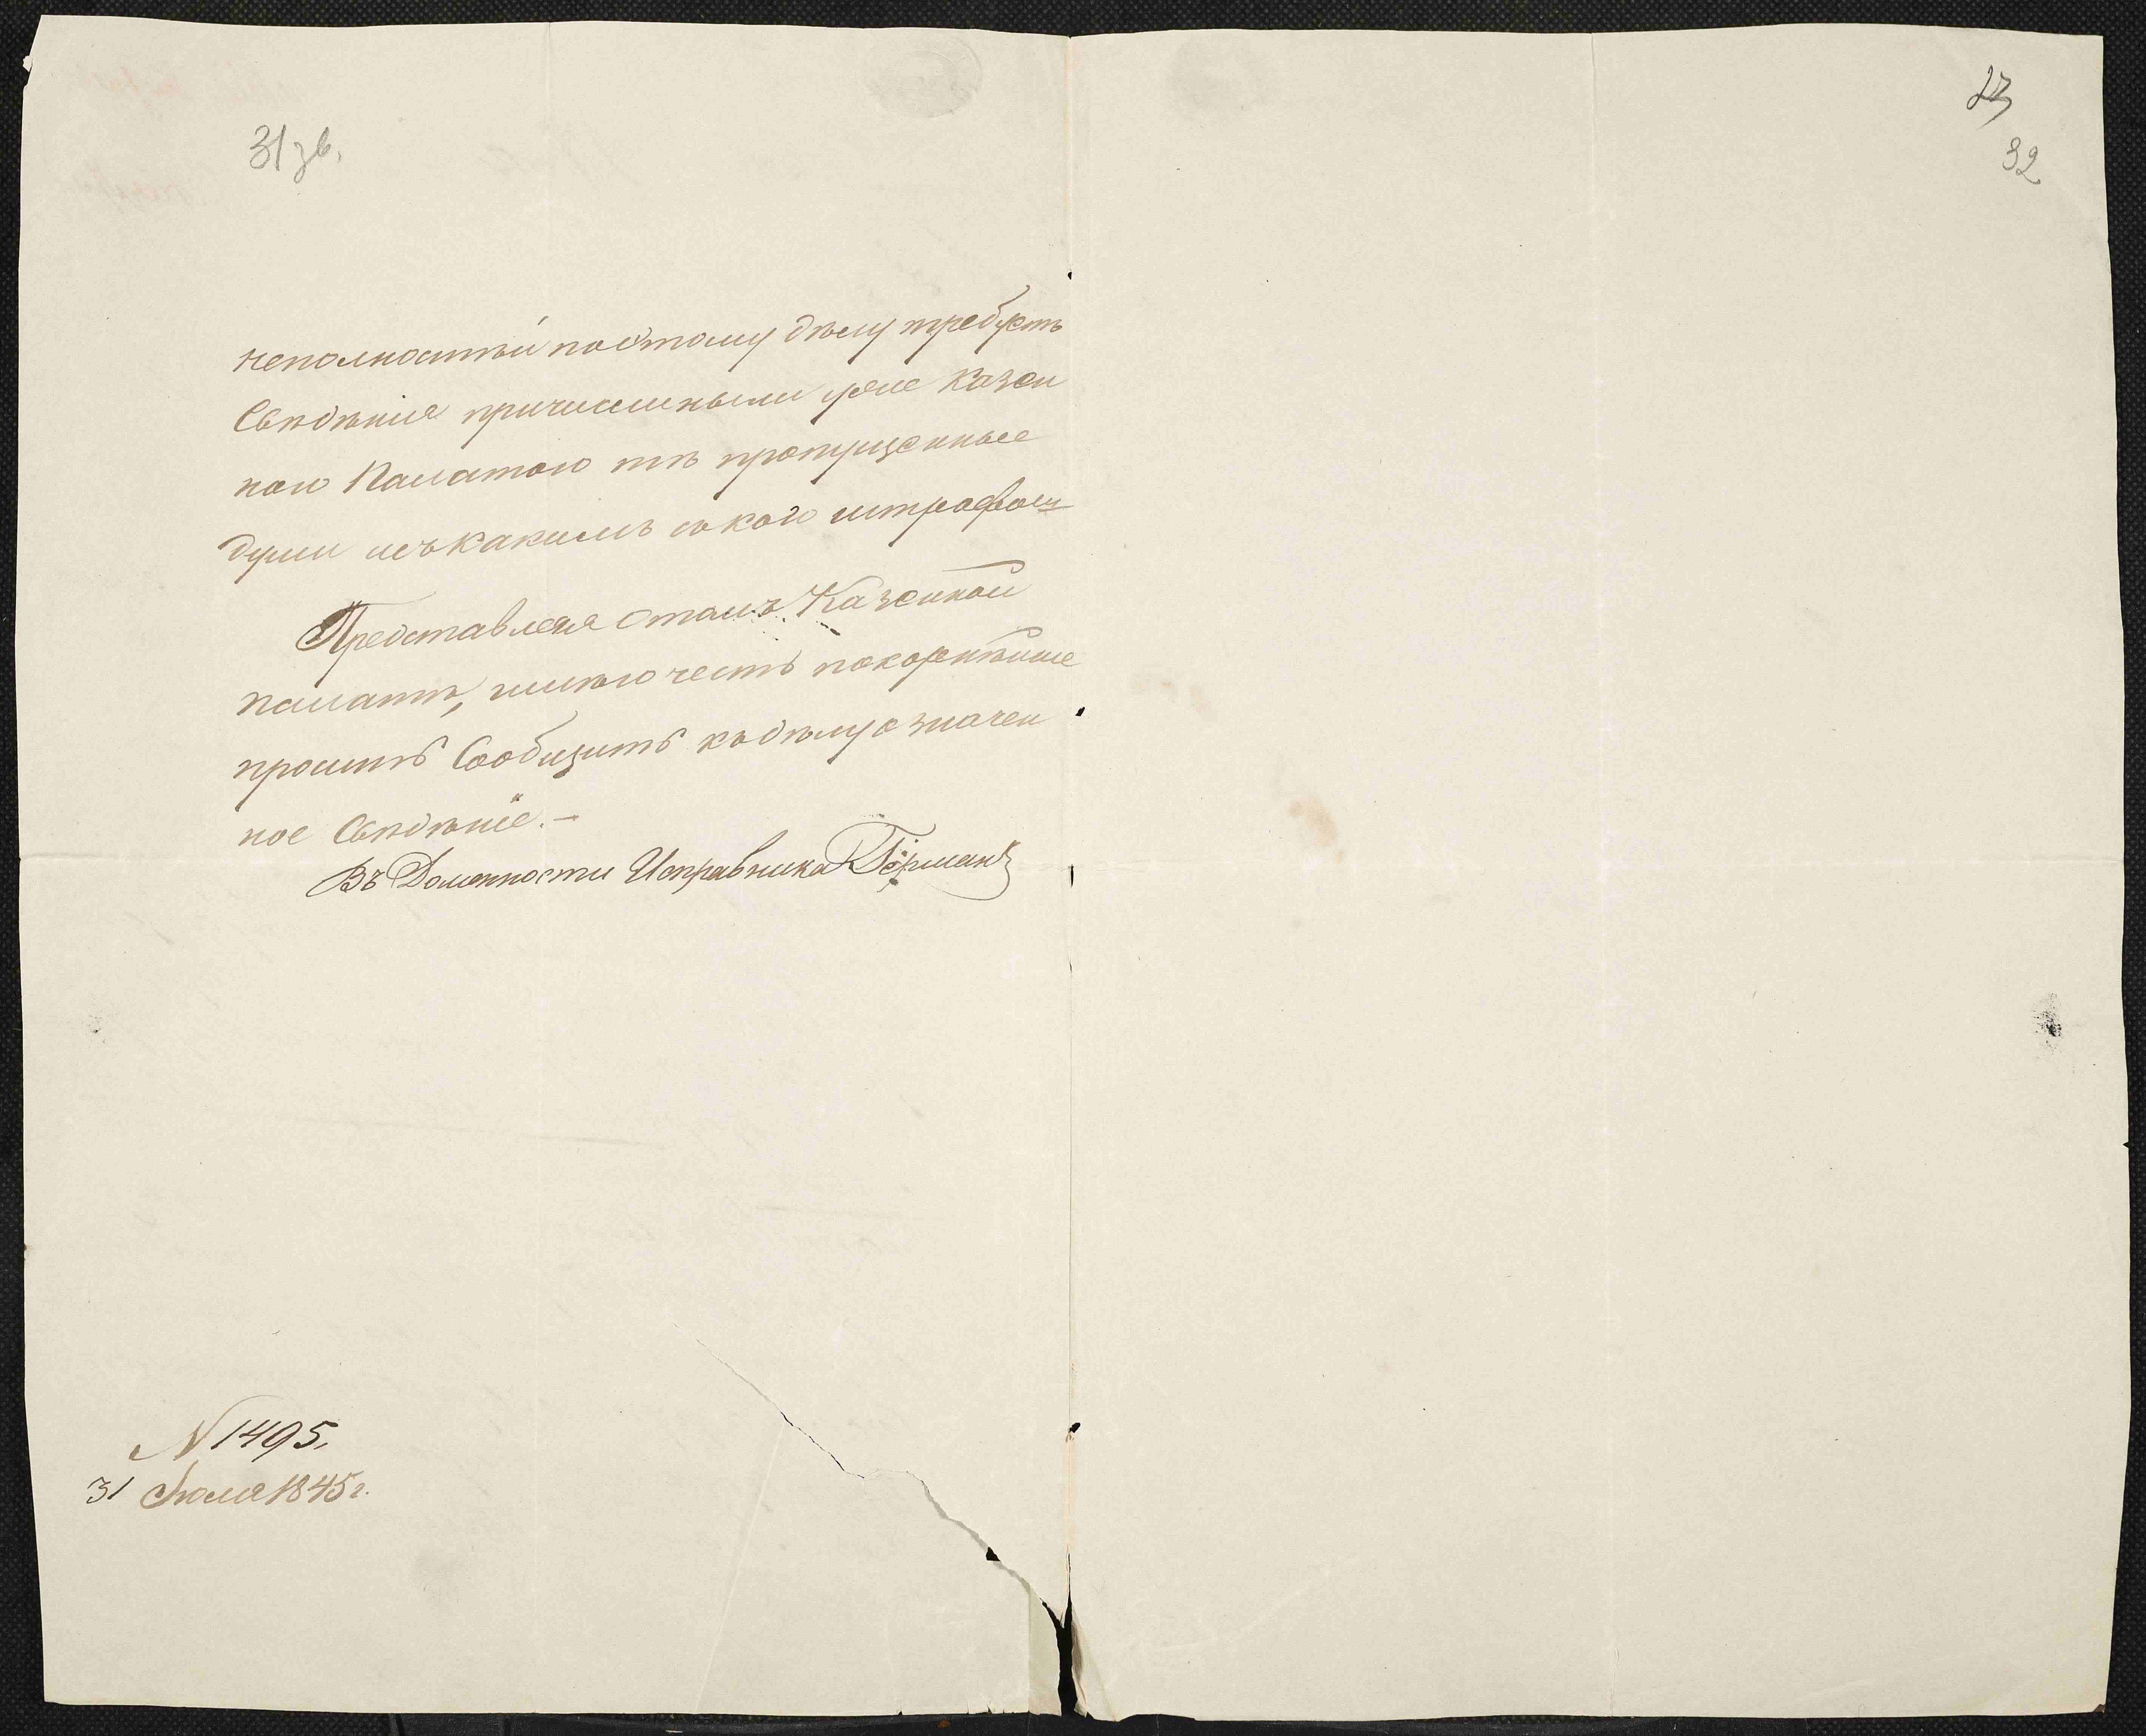 31 зв.
23
32
неполностій поэтому дѣлу требуетъ
Свѣдѣнiя причисленныли уже Казен
ною Палатою тѣ пропущенные
души исъкакимъ ского штрафом
Представляя отомъ Казенной
палатѣ, имѣю честь покорнѣйше
просить Сообщить къдѣлу означен
ное Свѣдѣнiе. —
Въ Должности Исправника Германъ
N 1495.
31 Iюля 1845 г.